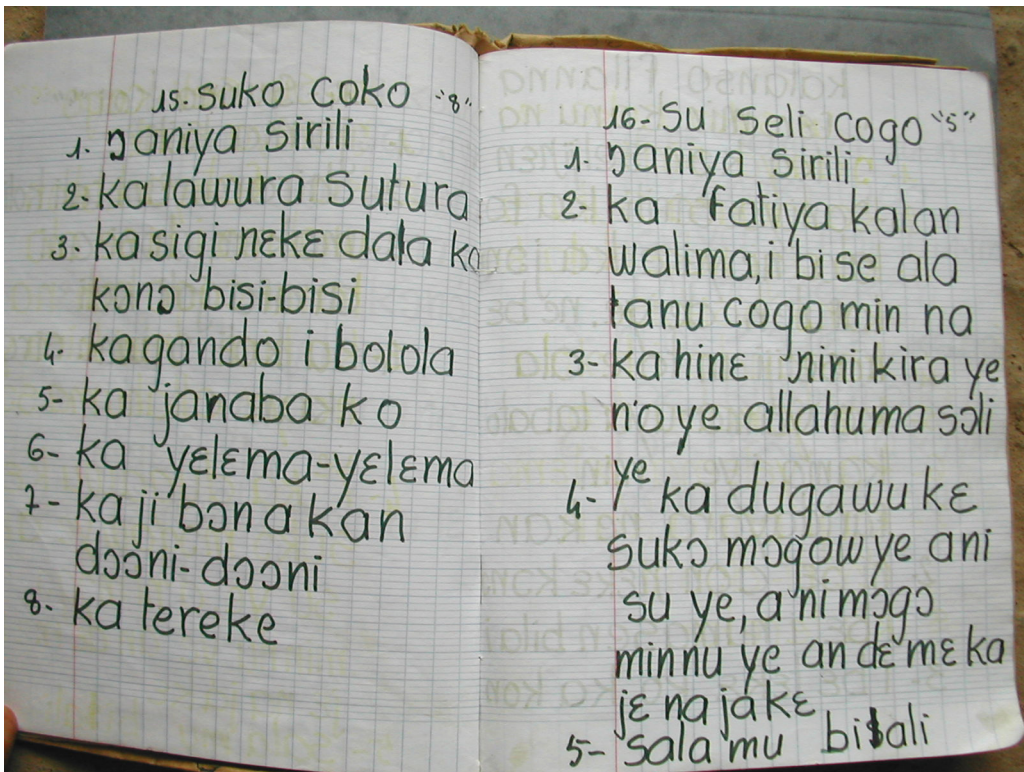 15. suko coko "8"
1. ŋaniya sirili
2. ka lawura sutura
3. ka sigi nɛkɛ dala ka
kɔnɔ bisi-bisi
4. ka gando i bolola
5- ka janaba ko
6- ka yɛlɛma-yɛlɛma
7- ka ji bɔn a kan
dɔɔni-dɔɔni
8. ka tereke
16- su seli cogo "5"
1. ŋaniya sirili
2- ka fatiya kalan
walima, i bi se ala
tanu cogo min na
3- ka hinɛ ɲini kira ye
n'o ye allahuma sɔli
ye
4- ye ka dugawu kɛ
sukɔ mɔgow ye ani
su ye, a ni mɔgɔ
minnu ye an dɛmɛ ka
jɛ na ja kɛ
5- sala mu bisali